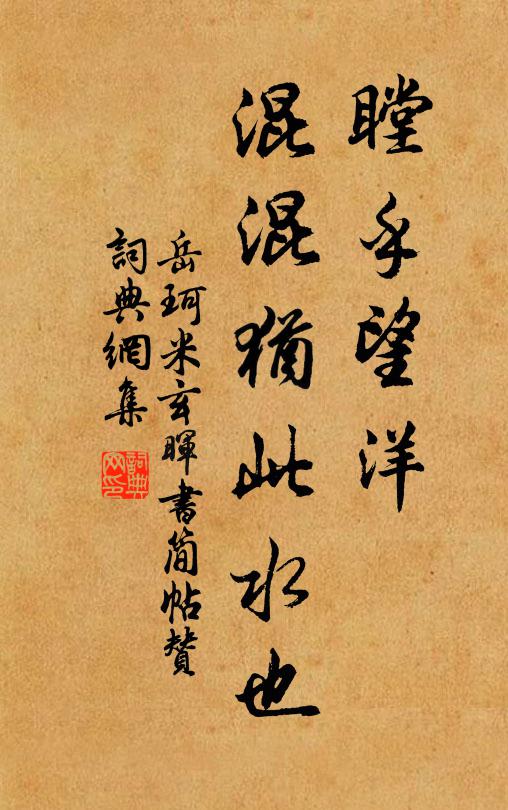 瞠乎望洋
混混猶此水也
岳珂米玄暉書簡帖贊
詞典網集
詞典網印